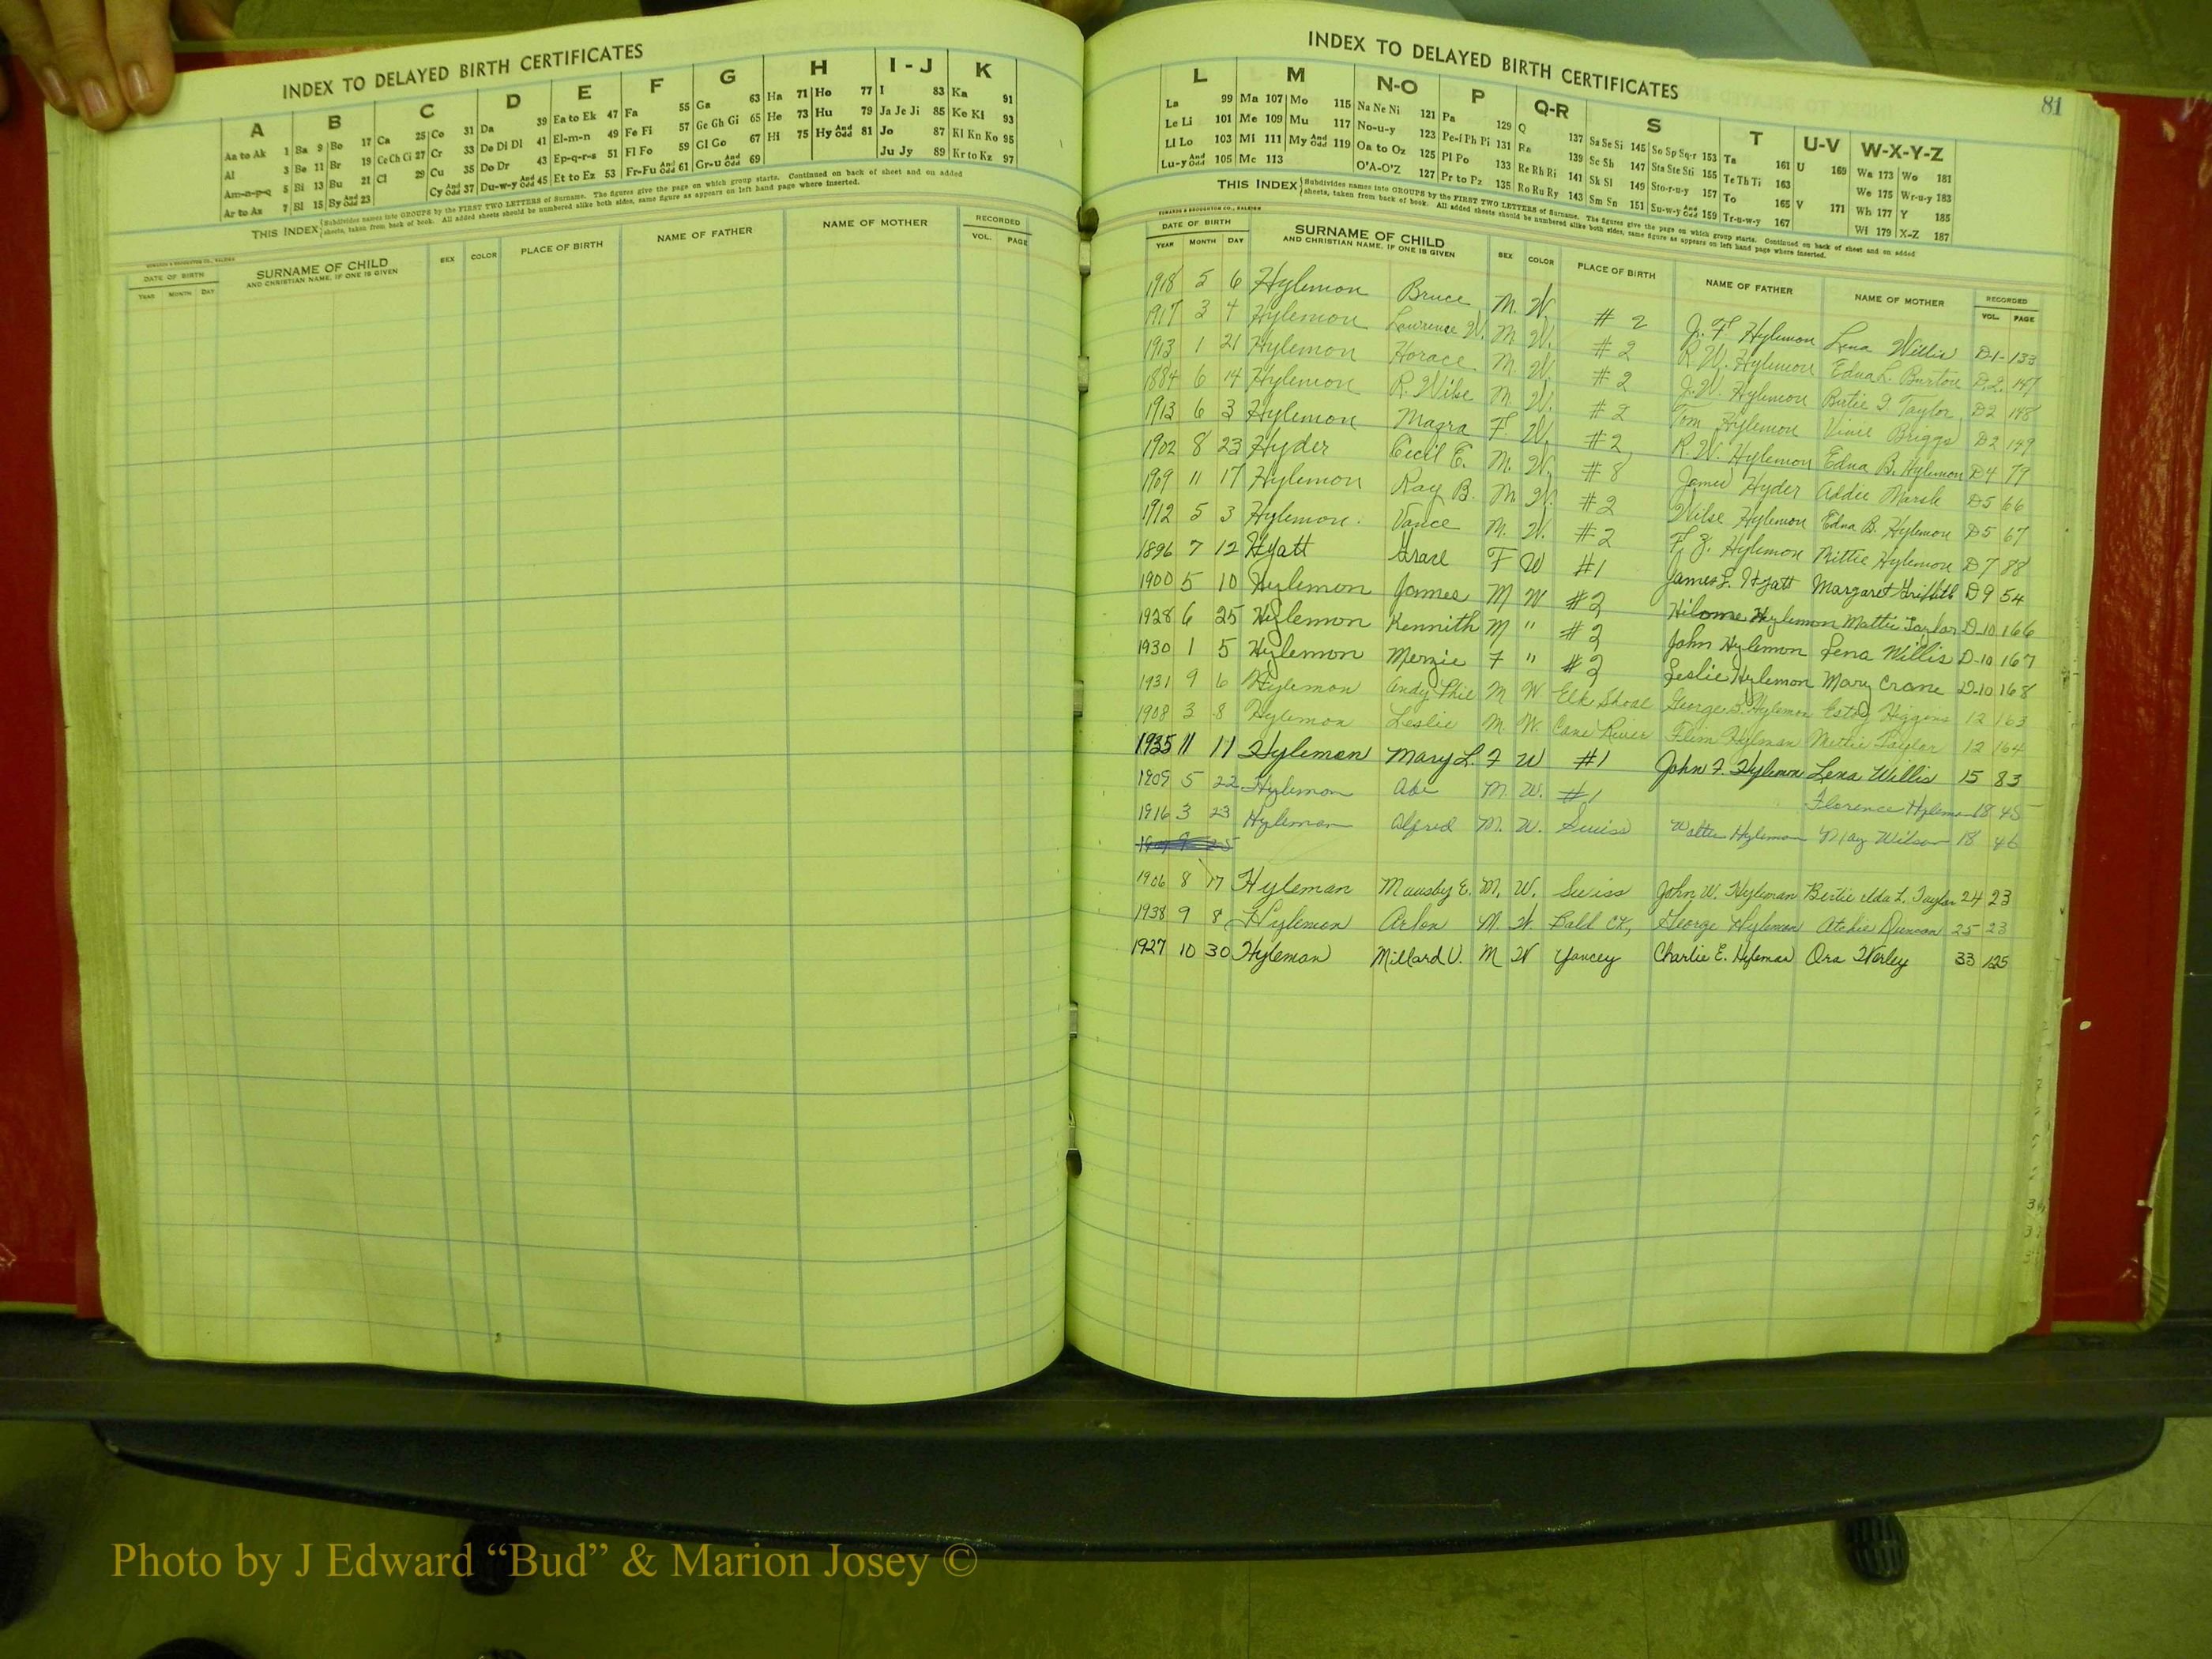 INDEX TO DELAYED BIRTH CERTIFICATES
A B C D E F G H I - J K
Aa to Ak 1 Ba 9 Bo 17 Ca 25 Co 31 Da 39 Ea to Ek 47 Fa 55 Ga 63 Ha 71 Ho 77 I 83 Ka 91
Al 3 Be 11 Br 19 Ce Ch Ci 27 Cr 33 De Di Dl 41 El-m-n 49 Fe Fi 57 Ge Gh Gi 65 He 73 Hu 79 Ja Je Ji 85 Ke Ki 93
Am-n-p-q 5 Bi 13 Bu 21 Cl 29 Cu 35 Do Dr 43 Ep-q-r-s 51 Fl Fo 59 Gl Go 67 Hi 75 Hy And Odd 81 Jo 87 Kl Kn Ko 95
Ar to Az 7 Bl 15 By And Odd 23 Cy And Odd 37 Du-w-y And Odd 45 Et to Ez 53 Fr-Fu And Odd 61 Gr-u And Odd 69 Ju Jy 89 Kr to Kz 97
THIS INDEX Subdivides names into GROUPS by the FIRST TWO LETTERS of Surname. The figures give the page on which group starts. Continued on back of sheet and on added sheets, taken from back of book. All added sheets should be numbered alike both sides, same figure as appears on left hand page where inserted.
DATE OF BIRTH SURNAME OF CHILD SEX COLOR PLACE OF BIRTH NAME OF FATHER NAME OF MOTHER RECORDED
YEAR MONTH DAY AND CHRISTIAN NAME, IF ONE IS GIVEN VOL. PAGE
INDEX TO DELAYED BIRTH CERTIFICATES
81
L M N-O P Q-R S T U-V W-X-Y-Z
La 99 Ma 107 Mo 115 Na Ne Ni 121 Pa 129 Q 137 Sa Se Si 145 So Sp Sq-r 153 Ta 161 U 169 Wa 173 Wo 181
Le Li 101 Me 109 Mu 117 No-u-y 123 Pe-f Ph Pi 131 Ra 139 Sc Sh 147 Sta Ste Sti 155 Te Th Ti 163 We 175 Wr-u-y 183
Ll Lo 103 Mi 111 My And Odd 119 Oa to Oz 125 Pl Po 133 Re Rh Ri 141 Sk Sl 149 Sto-r-u-y 157 To 165 V 171 Wh 177 Y 185
Lu-y And Odd 105 Mc 113 O'A-O'Z 127 Pr to Pz 135 Ro Ru Ry 143 Sm Sn 151 Su-w-y And Odd 159 Tr-u-w-y 167 Wi 179 X-Z 187
THIS INDEX Subdivides names into GROUPS by the FIRST TWO LETTERS of Surname. The figures give the page on which group starts. Continued on back of sheet and on added sheets, taken from back of book. All added sheets should be numbered alike both sides, same figure as appears on left hand page where inserted.
EDWARDS & BROUGHTON CO., RALEIGH
DATE OF BIRTH SURNAME OF CHILD SEX COLOR PLACE OF BIRTH NAME OF FATHER NAME OF MOTHER RECORDED
YEAR MONTH DAY AND CHRISTIAN NAME, IF ONE IS GIVEN VOL. PAGE
1918 5 6 Hylemon Bruce M. W. # 2 J. F. Hylemon Lena Willis D-1- 133
1917 3 4 Hylemon Lawrence W. M. W. # 2 R. W. Hylemon Edna L. Burton D.2. 147
1913 1 21 Hylemon Horace M. W. # 2 J. W. Hylemon Birtie I Taylor D2 148
1884 6 14 Hylemon R. Wilse M. W. # 2 Tom Hylemon Vinie Briggs D2 149
1913 6 3 Hylemon Magra F. W. # 2 R. W. Hylemon Edna B. Hylemon D4 79
1902 8 23 Hyder Cecil E. M. W. # 8 James Hyder Addie Marsh D5 66
1909 11 17 Hylemon Ray B. M. W. # 2 Wilse Hylemon Edna B. Hylemon D5 67
1912 5 3 Hylemon Vance M. W. # 2 F. Z. Hylemon Mittie Hylemon D7 88
1896 7 12 Hyatt Grace F W #1 James L. Hyatt Margaret Griffith D9 54
1900 5 10 Hylemon James M W #2 Hylemon Mattie Taylor D-10 166
1928 6 25 Hylemon Kennith M " #2 John Hylemon Lena Willis D-10 167
1930 1 5 Hylemon Merzie F " #2 Leslie Hylemon Mary Crane D-10 168
1931 9 6 Hylemon Andy Phil M W Elk Shoal George B. Hylemon Higgins 12 163
1908 3 8 Hylemon Leslie M. W. Cane River Flem Hylman Mittie Taylor 12 164
1935 11 11 Hylemon Mary L. F W #1 John F. Hylemon Lena Willis 15 83
1909 5 22 Hylemon Abe M. W. #1 Florence Hylemon 18 45
1916 3 23 Hylemon Alfred M. W. Swiss Walter Hylemon May Wilson 18 46
1906 8 17 Hyleman E. M. W. Swiss John W. Hyleman Bertie elda L. Taylor 24 23
1938 9 8 Hylemon Arlon M. W. Bald Ck, George Hylemon Atchie Duncan 25 23
1927 10 30 Hyleman Millard V. M W Yancey Charlie E. Hyleman Ora Werley 33 125
Photo by J Edward “Bud” & Marion Josey ©